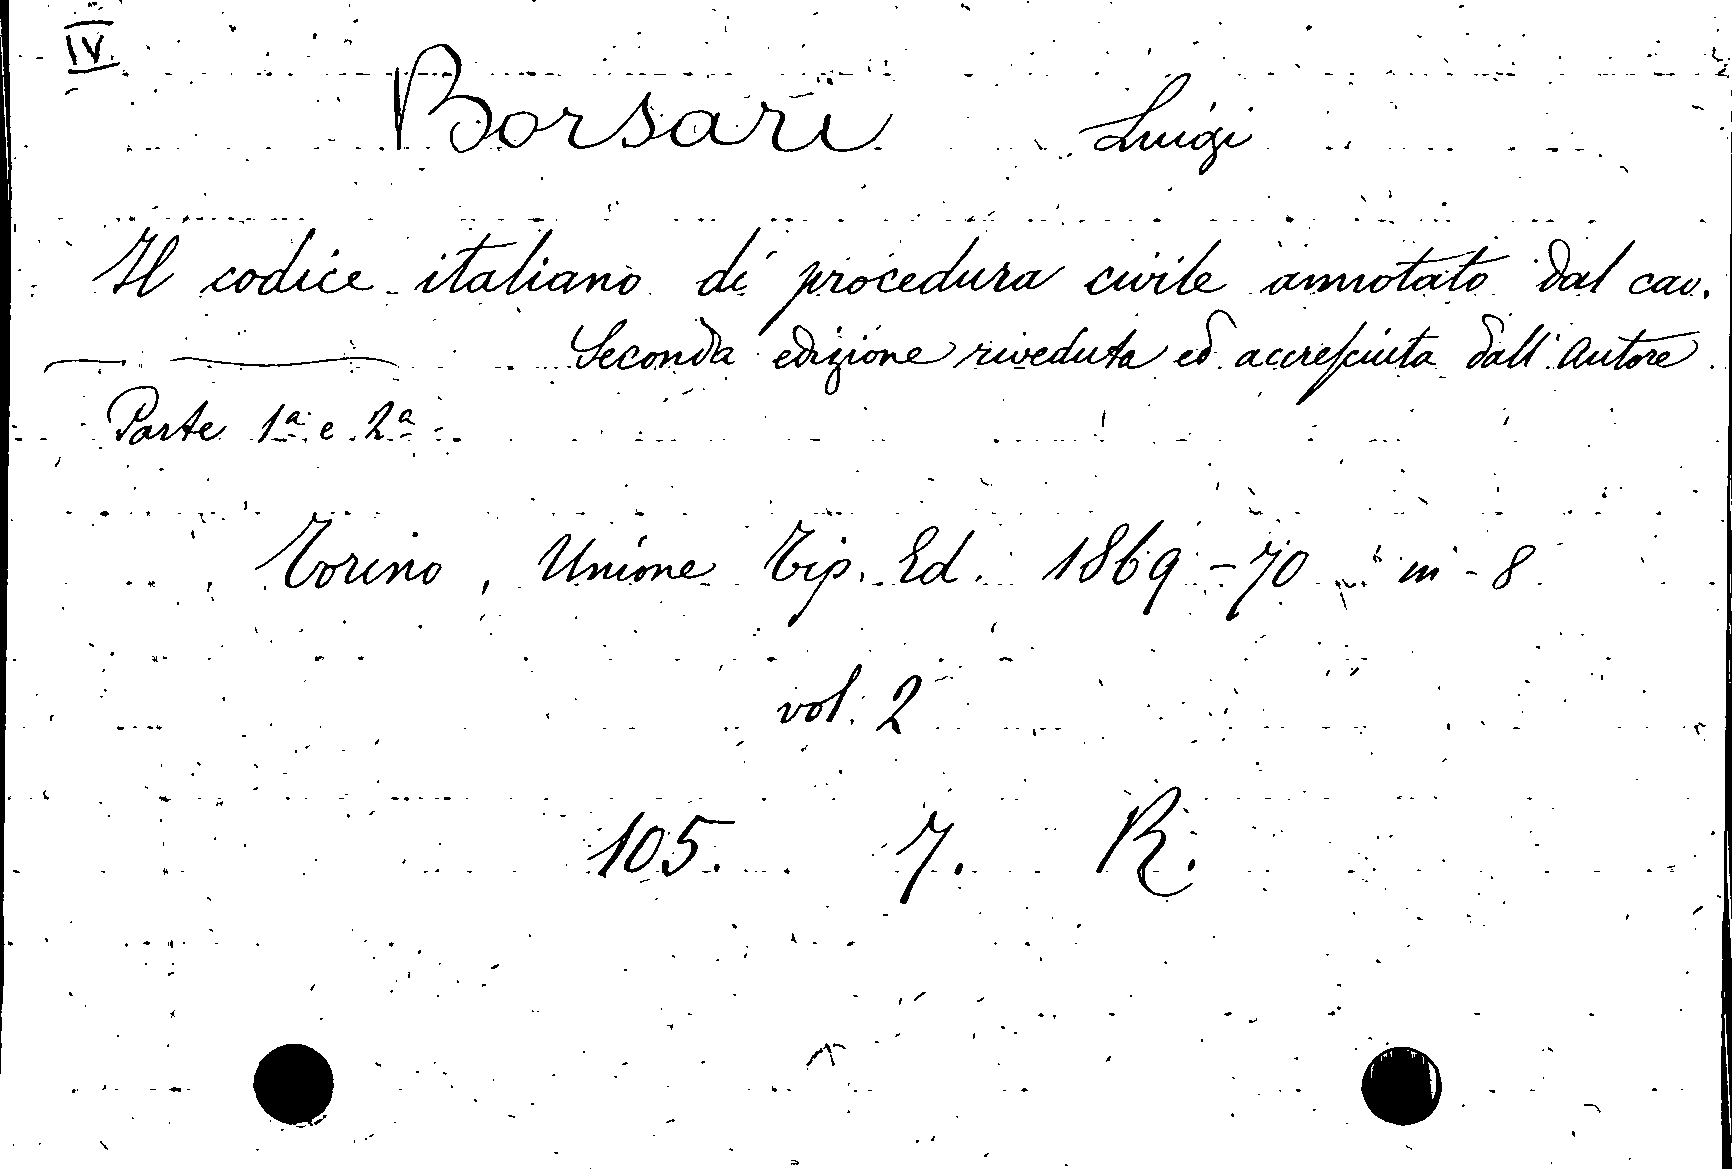 IV
Borsari Luigi
Il codice italiano di procedura civile annotato dal cav.
Seconda edizione riveduta ed accresciuta dall'Autore
Parte 1ª e 2ª
Torino, Unione Tip. Ed. 1869-70 in-8
vol. 2
105. 7. R.